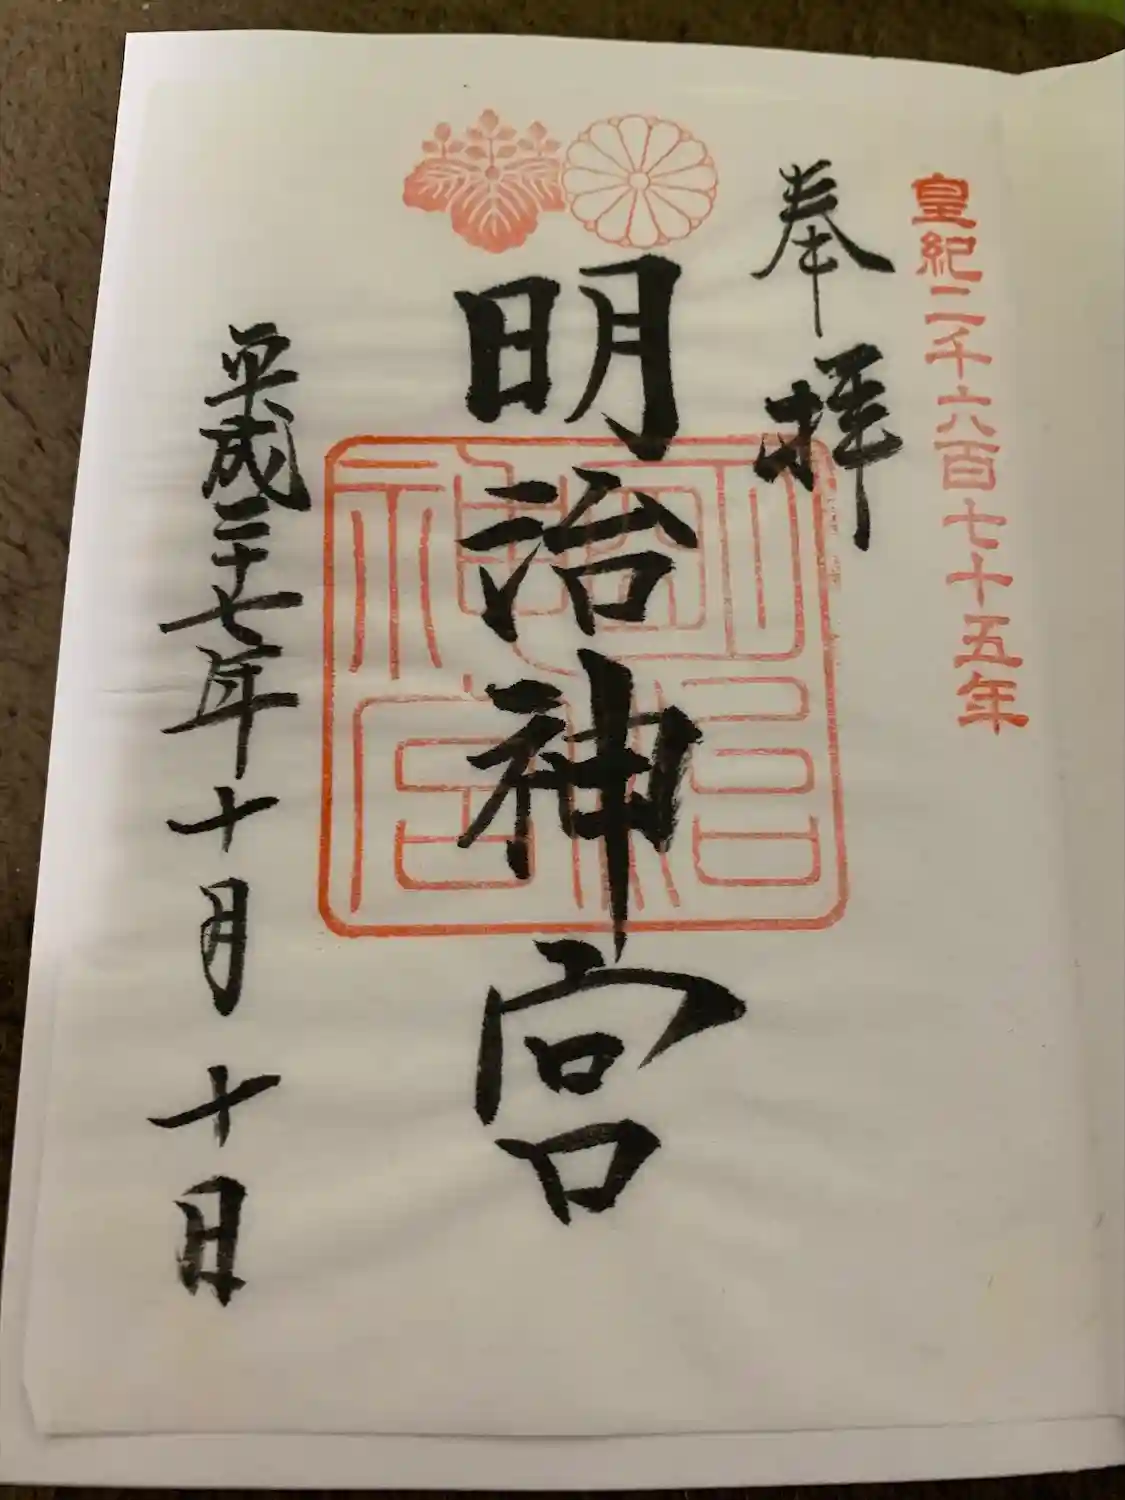 皇紀二千六百七十五年
奉拝
明治神宮
明治神宮
平成二十七年十月十日